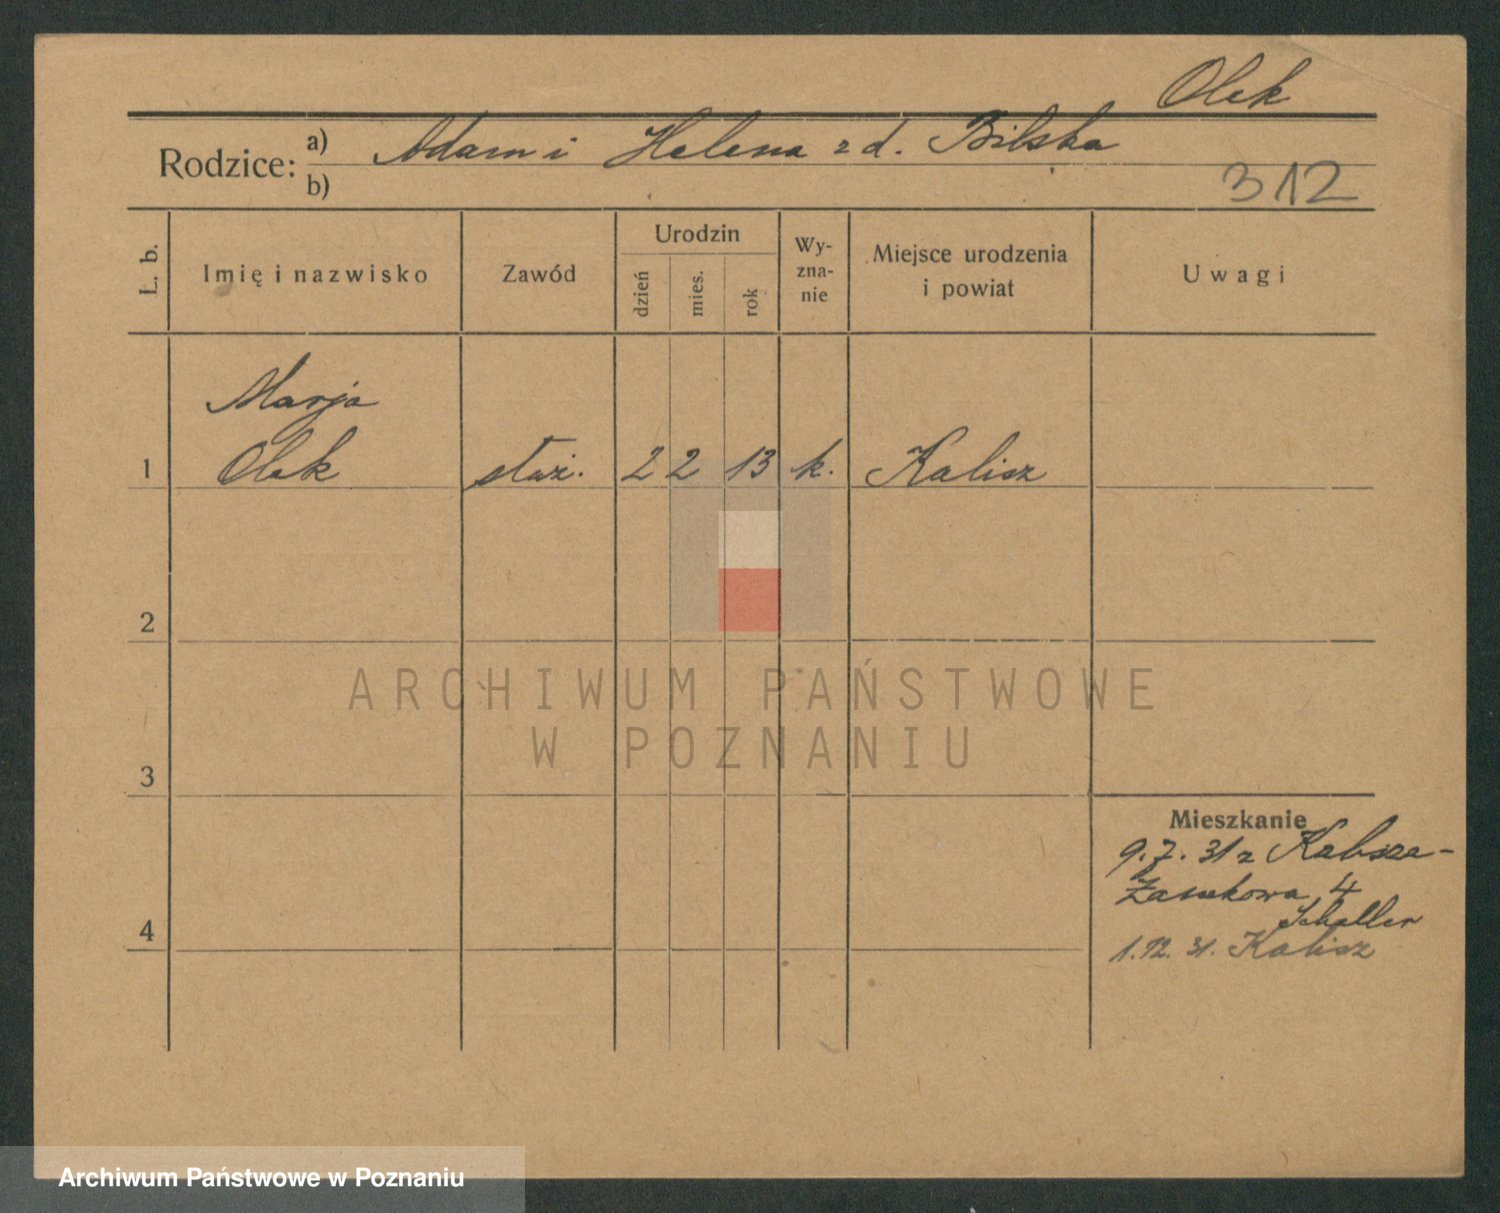 Olek
Rodzice: a) Adam i Helena z d. Bilska
b)
312
L. b.
Imię i nazwisko
Zawód
Urodzin
dzień
mies.
rok
Wy-
zna-
nie
Miejsce urodzenia
i powiat
Uwagi
Marja
1 Olek służ. 2 2 13 k. Kalisz
2
3
4
Mieszkanie
9.7.31 z
4
Scheller
1.12.31. Kalisz
ARCHIWUM PAŃSTWOWE
W POZNANIU
Archiwum Państwowe w Poznaniu